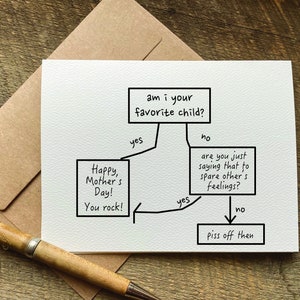 am i your
favorite child?
yes
no
Happy,
Mother s
Day!
You rock!
are you just
saying that to
spare other s
feelings?
yes
no
piss off then